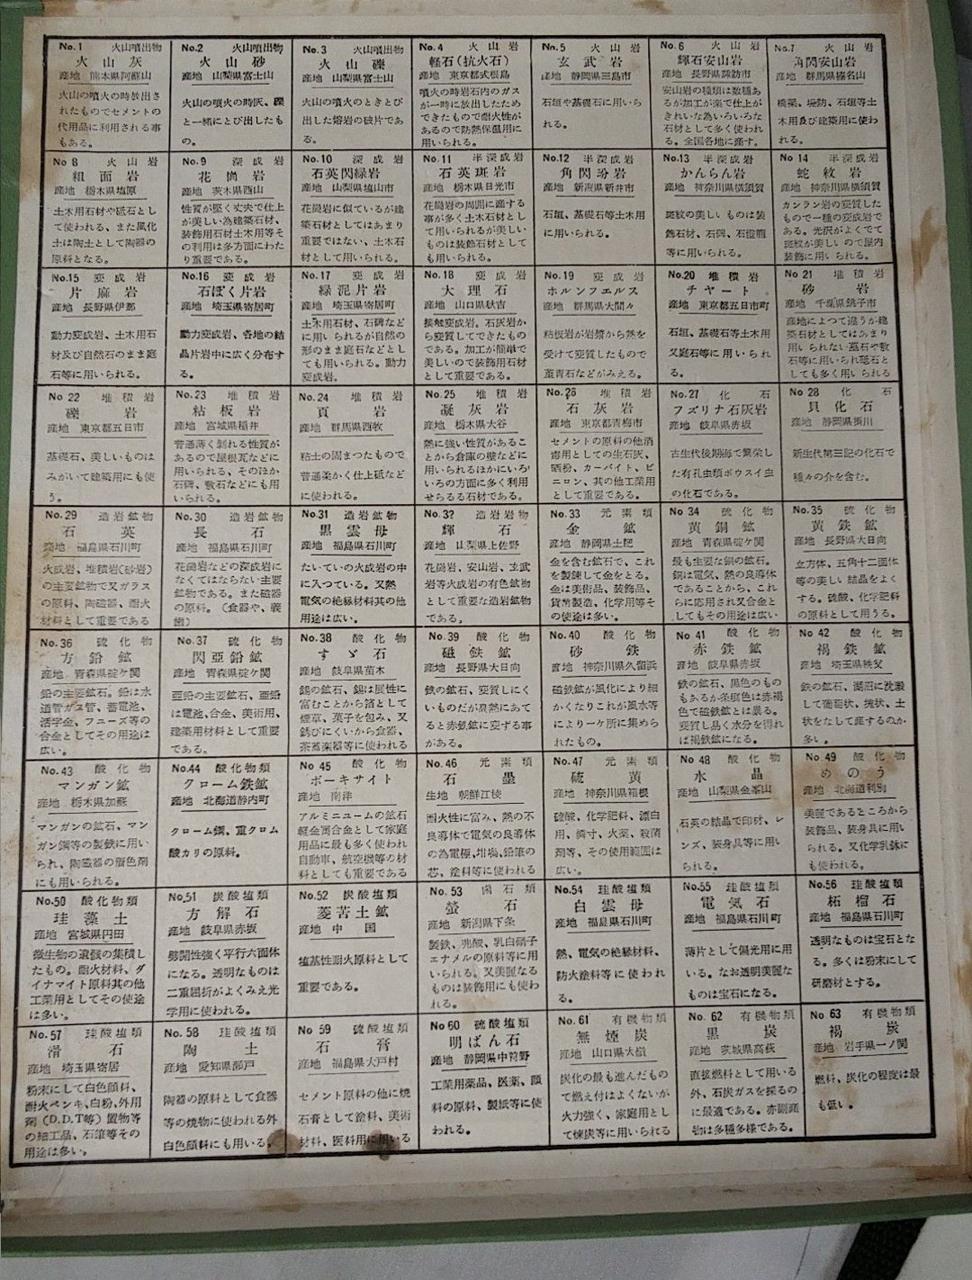 No.1 火山噴出物
火山灰
産地 熊本県阿蘇山
火山の噴火の時放出さ
れたものでセメントの
代用品に利用される事
もある。
No.2 火山噴出物
火山砂
産地 山梨県富士山
火山の噴火の時灰、礫
と一緒にとび出したも
の。
No.3 火山噴出物
火山礫
産地 山梨県富士山
火山の噴火のときとび
出した熔岩の破片であ
る。
No.4 火山岩
軽石(抗火石)
産地 東京都式根島
噴火の時岩石内のガス
が一時に放出したため
できたもので耐火性が
あるので防熱保温用に
用いられる。
No.5 火山岩
玄武岩
産地 静岡県三島市
石垣や基礎石に用いら
れる。
No.6 火山岩
輝石安山岩
産地 長野県諏訪市
安山岩の種類は数種あ
るが加工が楽で仕上が
きれいな為いろいろな
石材として多く使われ
る。全国各地に産す。
No.7 火山岩
角閃安山岩
産地 群馬県榛名山
橋梁、堤防、石垣等土
木用及び建築用に使わ
れる。
No 8 火山岩
粗面岩
産地 栃木県塩原
土木用石材や砥石とし
て使われる、また風化
土は陶土として陶器の
原料となる。
No.9 深成岩
花崗岩
産地 茨木県西山
性質が堅く丈夫で仕上
が美しい為建築石材、
装飾用石材土木用等そ
の利用は多方面にわた
り重要である。
No.10 深成岩
石英閃緑岩
産地 山梨県塩山市
花崗岩に似ているが建
築石材としてはあまり
重要ではない、土木石
材として用いられる。
No.11 半深成岩
石英斑岩
産地 栃木県日光市
花崗岩の周囲に産する
事が多く土木石材とし
て用いられるが美しい
ものは装飾石材として
も用いられる。
No.12 半深成岩
角閃玢岩
産地 新潟県新井市
石垣、基礎石等土木用
に用いられる。
No.13 半深成岩
かんらん岩
産地 神奈川県横須賀
斑紋の美しいものは装
飾石材、石碑、石燈籠
等に用いられる。
No 14 半深成岩
蛇紋岩
産地 神奈川県横須賀
カンラン岩の変質した
もので一種の変成岩で
ある。光沢がよくでて
斑紋が美しいので屋内
装飾に用いられる。
No.15 変成岩
片麻岩
産地 長野県伊那
動力変成岩、土木用石
材及び自然石のまま庭
石等に用いられる。
No.16 変成岩
石ぼく片岩
産地 埼玉県寄居町
動力変成岩、各地の結
晶片岩中に広く分布す
る。
No.17 変成岩
緑泥片岩
産地 埼玉県寄居町
土木用石材、石碑などに
用いられるが自然の
形のまま庭石などとし
ても用いられる。動力
変成岩。
No.18 変成岩
大理石
産地 山口県秋吉
接触変成岩。石灰岩か
ら変質してできたもの
である。加工が簡単で
美しいので装飾用石材
として重要である。
No.19 変成岩
ホルンフエルス
産地 群馬県大間々
粘板岩が岩漿から熱を
受けて変質したもので
菫青石などがみえる。
No.20 堆積岩
チャート
産地 東京都五日市町
石垣、基礎石等土木用
又庭石等に用いられ
る。
No 21 堆積岩
砂岩
産地 千葉県銚子市
産地によつて違うが建
築石材としてはあまり
用いられない墓石や敷
石等に用いられ砥石と
しても多く用いられる
No 22 堆積岩
礫岩
産地 東京都五日市
基礎石、美しいものは
みがいて建築用にも使
う。
No.23 堆積岩
粘板岩
産地 宮城県稲井
普通薄く剥れる性質が
あるので屋根瓦などに
用いられる、そのほか
石碑、敷石などにも用
いられる。
No.24 堆積岩
頁岩
産地 群馬県西牧
粘土の固まつたもので
普通柔かく仕上砥など
に使われる。
No.25 堆積岩
凝灰岩
産地 栃木県大谷
熱に強い性質があるこ
とから倉庫の壁などに
用いられるほかにいろ
いろの方面に多く利用
せらるる石材である。
No.26 堆積岩
石灰岩
産地 東京都青梅市
セメントの原料の他消
毒用としての生石灰、
晒粉、カーバイト、ビ
ニロン、其の他工業用
として重要である。
No.27 化石
フズリナ石灰岩
産地 岐阜県赤坂
古生代後期海で繁栄し
た有孔虫類ボウスイ虫
の化石である。
No.28 化石
貝化石
産地 静岡県掛川
新生代第三記の化石で
種々の介を含む。
No.29 造岩鉱物
石英
産地 福島県石川町
火成岩、堆積岩(砂岩)
の主要鉱物で又ガラス
の原料、陶磁器、耐火
材料として重要である
No.30 造岩鉱物
長石
産地 福島県石川町
花崗岩などの深成岩に
なくてはならない主要
鉱物である。また磁器
の原料。(食器や、義
歯)
No.31 造岩鉱物
黒雲母
産地 福島県石川町
たいていの火成岩の中
に入つている。又熱
電気の絶縁材料其の他
用途は広い。
No.32 造岩鉱物
輝石
産地 山梨県上佐野
花崗岩、安山岩、玄武
岩等火成岩の有色鉱物
として重要な造岩鉱物
である。
No.33 元素類
金鉱
産地 静岡県土肥
金を含む鉱石で、これ
を製錬して金をとる。
金は美術品、装飾品、
貨幣製造、化学用等そ
の使途は多い。
No 34 硫化物
黄銅鉱
産地 青森県碇ケ関
最も主要な銅の鉱石。
銅は電気、熱の良導体
であることから、これ
らに応用され又合金と
してもその用途は広い
No.35 硫化物
黄鉄鉱
産地 長野県大日向
立方体、五角十二面体
等の美しい結晶をよく
する。硫酸、化学肥料
の原料として用うる。
No.36 硫化物
方鉛鉱
産地 青森県碇ケ関
鉛の主要鉱石。鉛は水
道管ガス管、蓄電池、
活字金、フユーズ等の
合金としてその用途は
広い。
No.37 硫化物
閃亜鉛鉱
産地 青森県碇ケ関
亜鉛の主要鉱石、亜鉛
は電池、合金、美術用、
建築用材料として重要
である。
No.38 酸化物
すゞ石
産地 岐阜県苗木
錫の鉱石、錫は展性に
富むことから箔として
煙草、菓子を包み、又
銹びにくいから食器、
茶器楽器等に使われる
No.39 酸化物
磁鉄鉱
産地 長野県大日向
鉄の鉱石、変質しにく
いものだが炎熱にあて
ると赤鉄鉱に変する事
がある。
No.40 酸化物
砂鉄
産地 神奈川県久留浜
磁鉄鉱が風化により細
かくなりこれが風水等
によリ一ケ所に集めら
れたもの。
No 41 酸化物
赤鉄鉱
産地 岐阜県赤坂
鉄の鉱石、黒色のもの
もあるが条痕色は赤褐
色で磁鉄鉱とは異る。
変質し易く水分を得れ
ば褐鉄鉱になる。
No 42 酸化物
褐鉄鉱
産地 埼玉県秩父
鉄の鉱石、湖沼に沈澱
して葡萄状、塊状、土
状をなして産するのが
多い。
No.43 酸化物
マンガン鉱
産地 栃木県加蘇
マンガンの鉱石、マン
ガン鋼等の製鉄に用い
られ、陶磁器の着色剤
にも用いられる。
No.44 酸化物類
クローム鉄鉱
産地 北海道静内町
クローム鋼、重クロム
酸カリの原料。
No 45 酸化物
ボーキサイト
産地 南洋
アルミニュームの鉱石
軽金属合金として家庭
用品に最も多く使われ
自動車、航空機等の材
料としても重要である
No.46 元素類
石墨
生地 朝鮮江陵
耐火性に富み、熱の不
良導体で電気の良導体
の為電極、坩堝、鉛筆の
芯、塗料等に使われる
No.47 元素類
硫黄
産地 神奈川県箱根
硫酸、化学肥料、漂白
用、燐寸、火薬、殺菌
剤等、その使用範囲は
広い。
No 48 酸化物
水晶
産地 山梨県金峯山
石英の結晶で印材、レ
ンズ、装身具等に用い
られる。
No.49 酸化物
めのう
産地 北海道利別
美麗であるところから
装飾品、装身具に用い
られる。又化学乳鉢に
も使われる。
No.50 酸化物類
珪藻土
産地 宮城県円田
微生物の遺骸の集積し
たもの。耐火材料、ダ
イナマイト原料其の他
工業用としてその使途
は多い。
No.51 炭酸塩類
方解石
産地 岐阜県赤坂
劈開性強く平行六面体
になる。透明なものは
二重屈折がよくみえ光
学用に使われる。
No.52 炭酸塩類
菱苦土鉱
産地 中国
塩基性耐火原料として
重要である。
No.53 歯石類
螢石
産地 新潟県下条
製鉄、弗酸、乳白硝子
エナメルの原料等に用
いられる。又美麗なる
ものは装飾用にも使わ
れる。
No.54 珪酸塩類
白雲母
産地 福島県石川町
熱、電気の絶縁材料、
防火塗料等に使われ
る。
No.55 珪酸塩類
電気石
産地 福島県石川町
薄片として偏光用に用
いる。なお透明美麗な
ものは宝石になる。
No.56 珪酸塩類
柘榴石
産地 福島県石川町
透明なものは宝石とな
る。多くは粉末にして
研磨材とする。
No.57 珪酸塩類
滑石
産地 埼玉県寄居
粉末にして白色顔料、
耐火ペンキ、白粉、外用
剤(D.D.T等)置物等
の細工品、石筆等その
用途は多い。
No.58 珪酸塩類
陶土
産地 愛知県瀬戸
陶器の原料として食器
等の焼物に使われる外
白色顔料にも用いる。
No 59 硫酸塩類
石膏
産地 福島県大戸村
セメント原料の他に焼
石膏として塗料、美術
材料、医科用に用いる
No 60 硫酸塩類
明ばん石
産地 静岡県中狩野
工業用薬品、医薬、顔
料の原料、製紙等に使
われる。
No.61 有機物類
無煙炭
産地 山口県大嶺
炭化の最も進んだもの
で燃え付はよくないが
火力強く、家庭用とし
て煉炭等に用いられる
No.62 有機物類
黒炭
産地 茨城県高萩
直接燃料として用いる
外、石炭ガスを採るの
に最適である。赤副産
物は多種多様である。
No 63 有機物類
褐炭
産地 岩手県一ノ関
燃料、炭化の程度は最
も低い。